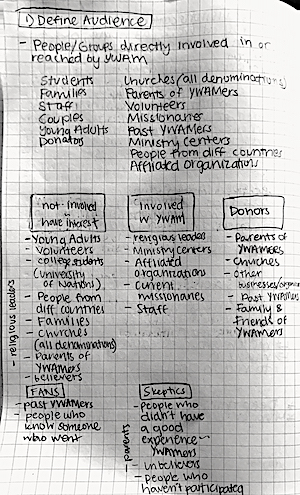 1) Define Audience
- People/Groups directly involved in or
reached by YWAM
Students
Families
Staff
Couples
Young Adults
Donators
Churches (all denominations)
Parents of YWAMers
Volunteers
Missionaries
Past YWAMers
Ministry Centers
People from diff countries
Affliated organizations
not involved
have interest
- Young Adults
- Volunteers
- college students
(University
of Nations)
- People from
diff countries
- Families
- Churches
(all denominations)
- Parents of
YWAMers
- believers
- religious leaders
Involved
w YWAM
- religious leaders
- Ministry Centers
- Affiliated
organizations
- Current
missionaries
- Staff
Donors
- Parents of
YWAMers
- Churches
- other
businesses/
- Past YWAMers
- Family &
Friends of
YWAMers
FANS
- past YWAMers
- people who
know someone
who went
Skeptics
- People who
didn't have
a good
experience
YWAMers
- unbelievers
- people who
haven't participated
- parents